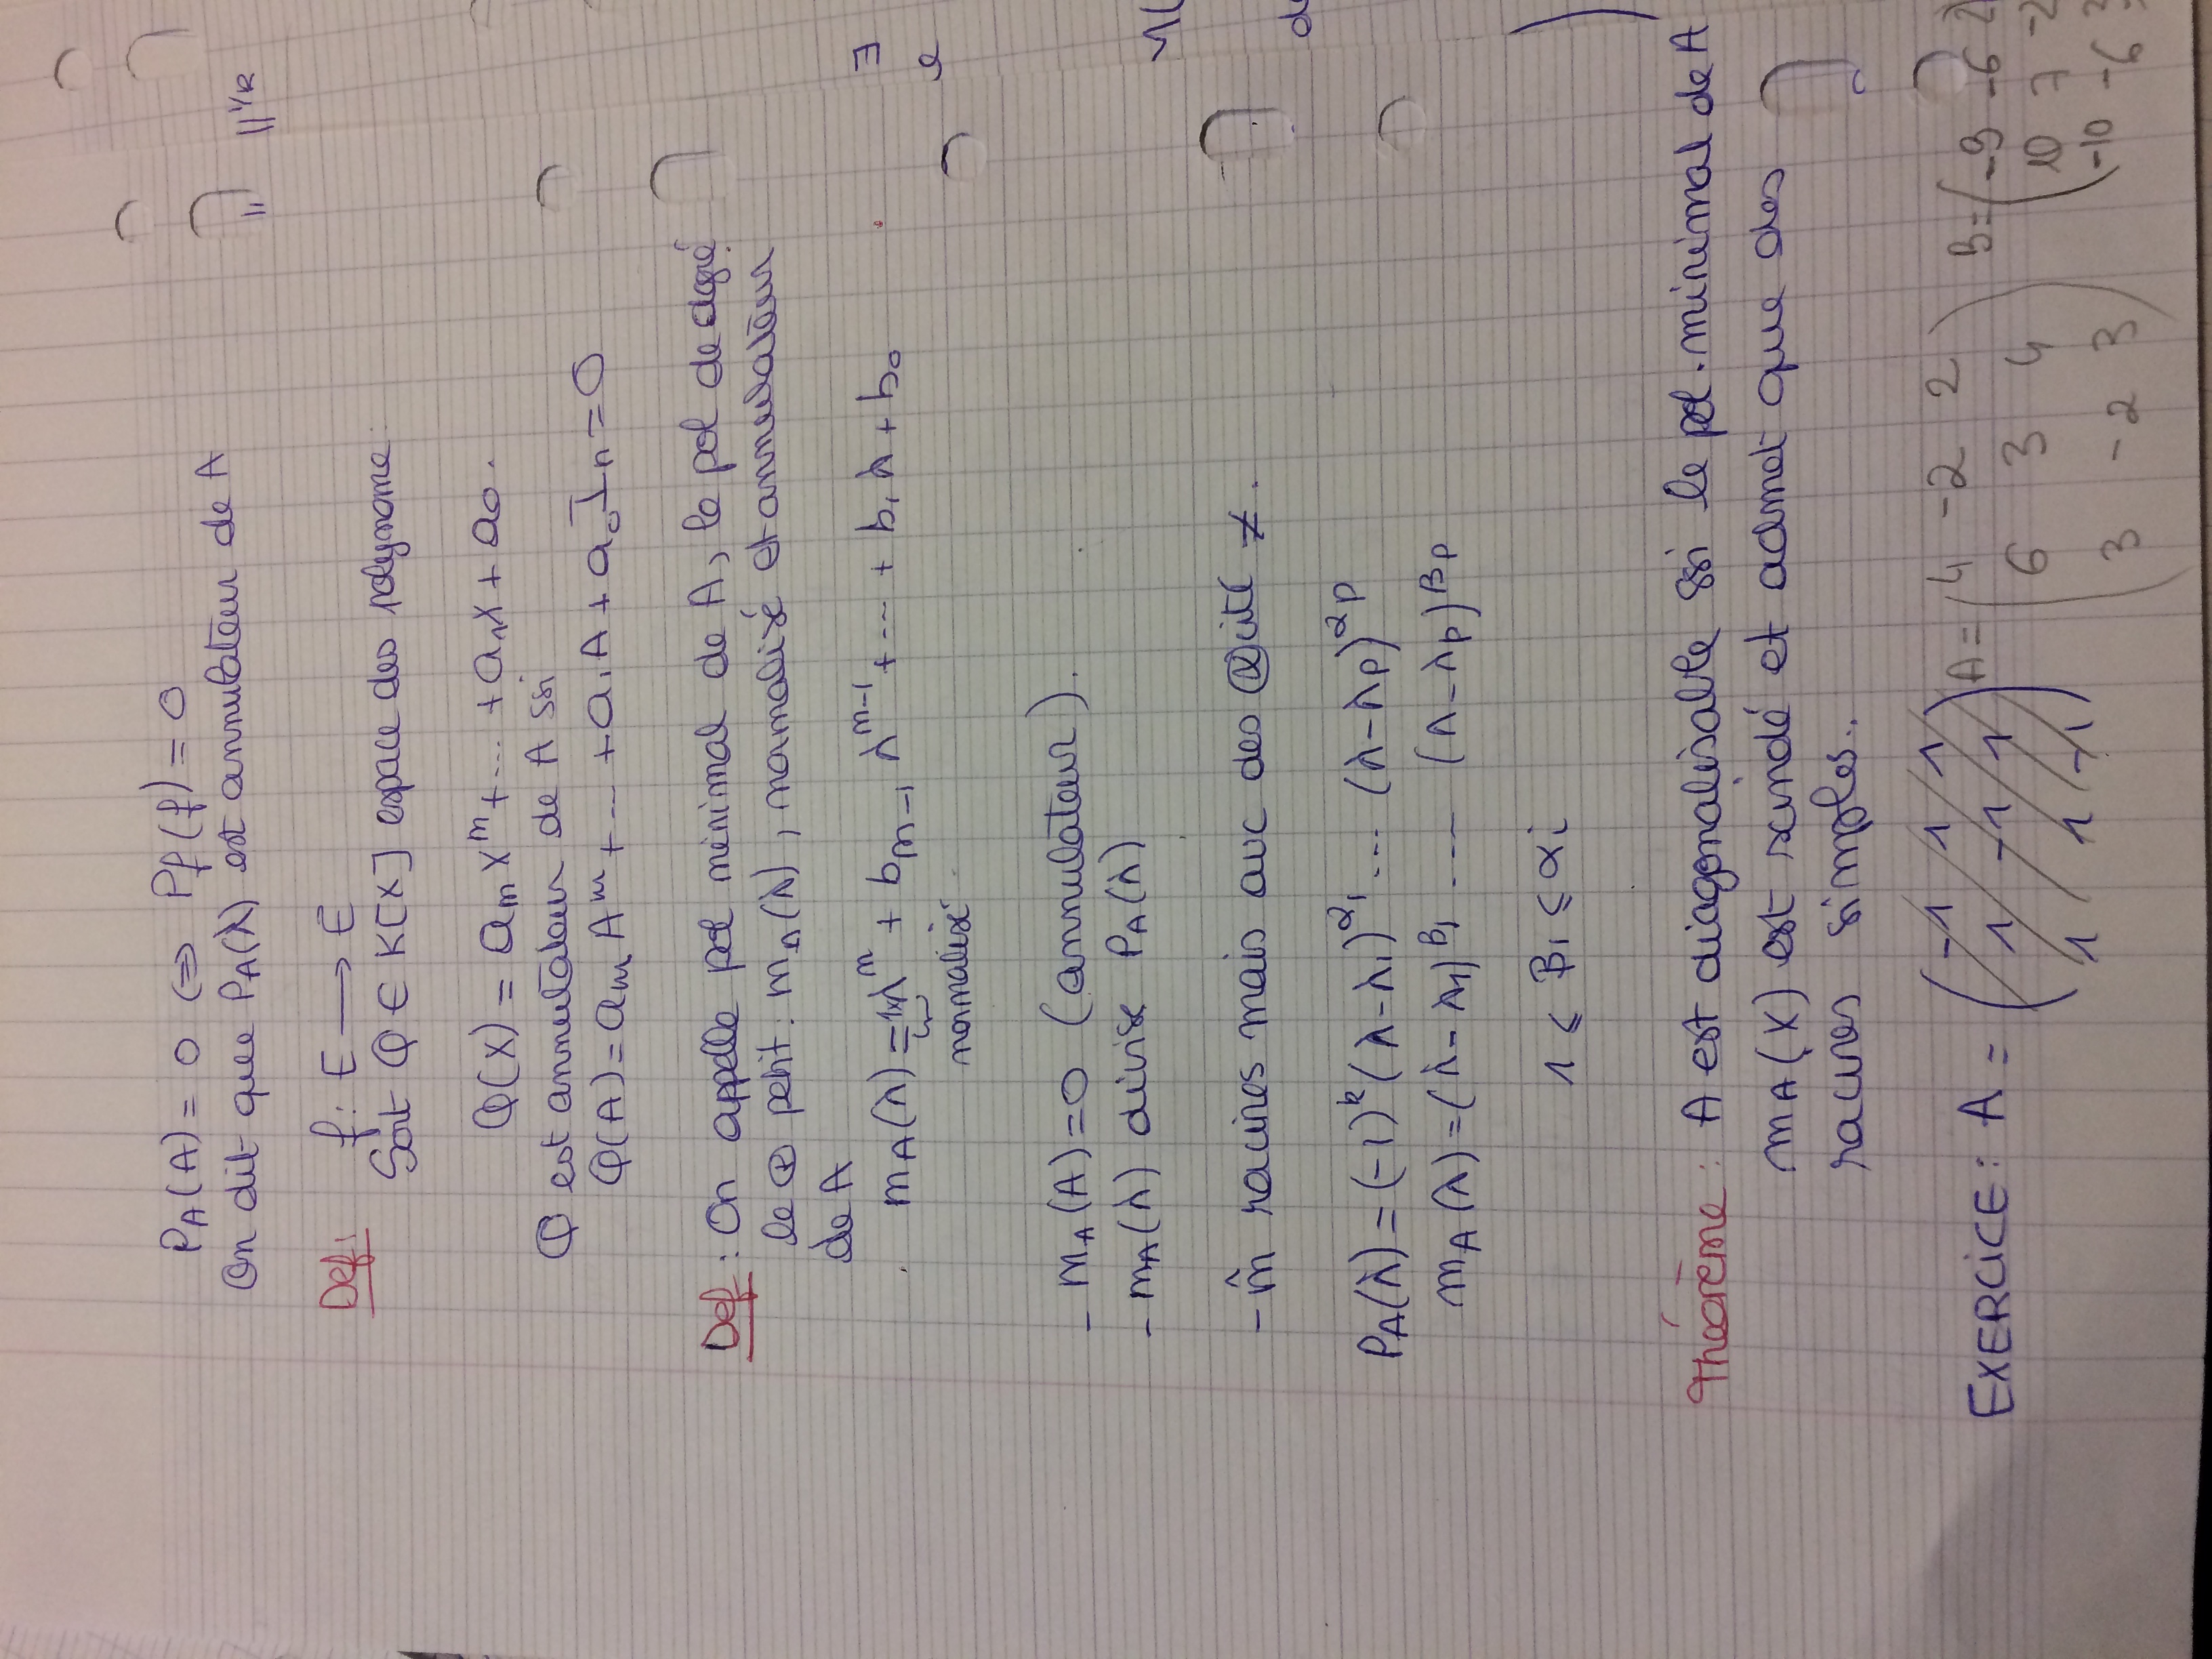 P_A(A) = 0 ⇔ Pf(f) = 0
On dit que P_A(λ) est annulateur de A
Def: f: E → E
Soit Q ∈ K[X] espace des polynome
Q(X) = a_m X^m + ... + a_1 X + a_0.
Q est annulateur de A ssi
Q(A) = a_m A^m + ... + a_1 A + a_0 I_n = 0
Def: On appelle pol minimal de A, le pol de degré
le ⊕ petit. m_A(λ), normalisé et annulateur
de A
m_A(λ) = 1×λ^m + b_{m-1} λ^{m-1} + ... + b_1 λ + b_0
normalisé
- m_A(A) = 0 (annulateur).
- m_A(λ) divise P_A(λ)
- m̂ racines mais avc des ⊗cité ≠.
P_A(λ) = (-1)^k (λ-λ_1)^{α_1} ... (λ-λ_p)^{α_p}
m_A(λ) = (λ-λ_1)^{β_1} ... (λ-λ_p)^{β_p}
1 ≤ β_i ≤ α_i
Théorème: A est diagonalisable ssi le pol. minimal de A
m_A(X) est scindé et admet que des
racines simples.
EXERCICE: A = (-1 1 1 A = (4 -2 2) B = (-9 -6 2
1 -1 1 6 3 4 10 7 -2
1 1 -1) 3 -2 3 -10 -6 3